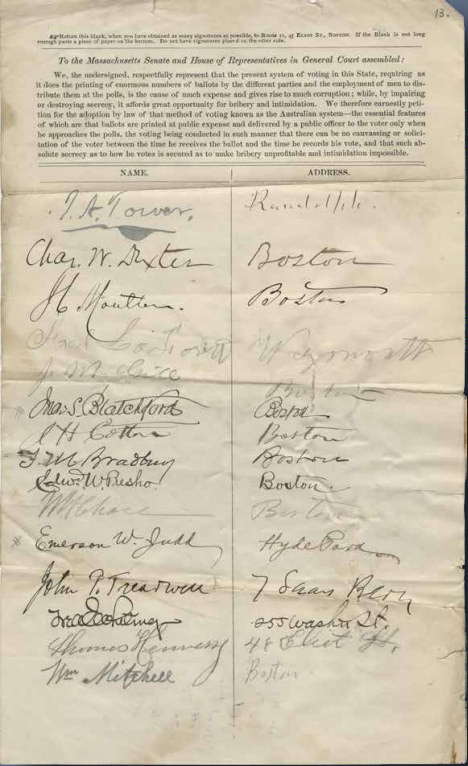 13.
Return this blank, when you have obtained as many signatures as possible, to Room 11, 47 Elliot St., Boston. If the Blank is not long
enough paste a piece of paper on the bottom. Do not have signatures placed on the other side.
To the Massachusetts Senate and House of Representatives in General Court assembled:
We, the undersigned, respectfully represent that the present system of voting in this State, requiring as
it does the printing of enormous numbers of ballots by the different parties and the employment of men to dis-
tribute them at the polls, is the cause of much expense and gives rise to much corruption; while, by impairing
or destroying secrecy, it affords great opportunity for bribery and intimidation. We therefore earnestly peti-
tion for the adoption by law of that method of voting known as the Australian system—the essential features
of which are that ballots are printed at public expense and delivered by a public officer to the voter only when
he approaches the polls, the voting being conducted in such manner that there can be no canvassing or solici-
tation of the voter between the time he receives the ballot and the time he records his vote, and that such ab-
solute secrecy as to how he votes is secured as to make bribery unprofitable and intimidation impossible.
NAME. ADDRESS.
Tower. Randolph.
Chas. W. Dexter Boston
Moulton. Boston
Weymouth
Boston
Blatchford Boston
Cotton Boston
Bradbury Boston
Edw. W. Presho. Boston.
Chase Boston
Emerson W. Judd Hyde Park
John P. Treadwell 7
255 Wash'n St.
Thomas Hennessy 48 Eliot St.
Wm Mitchell Boston